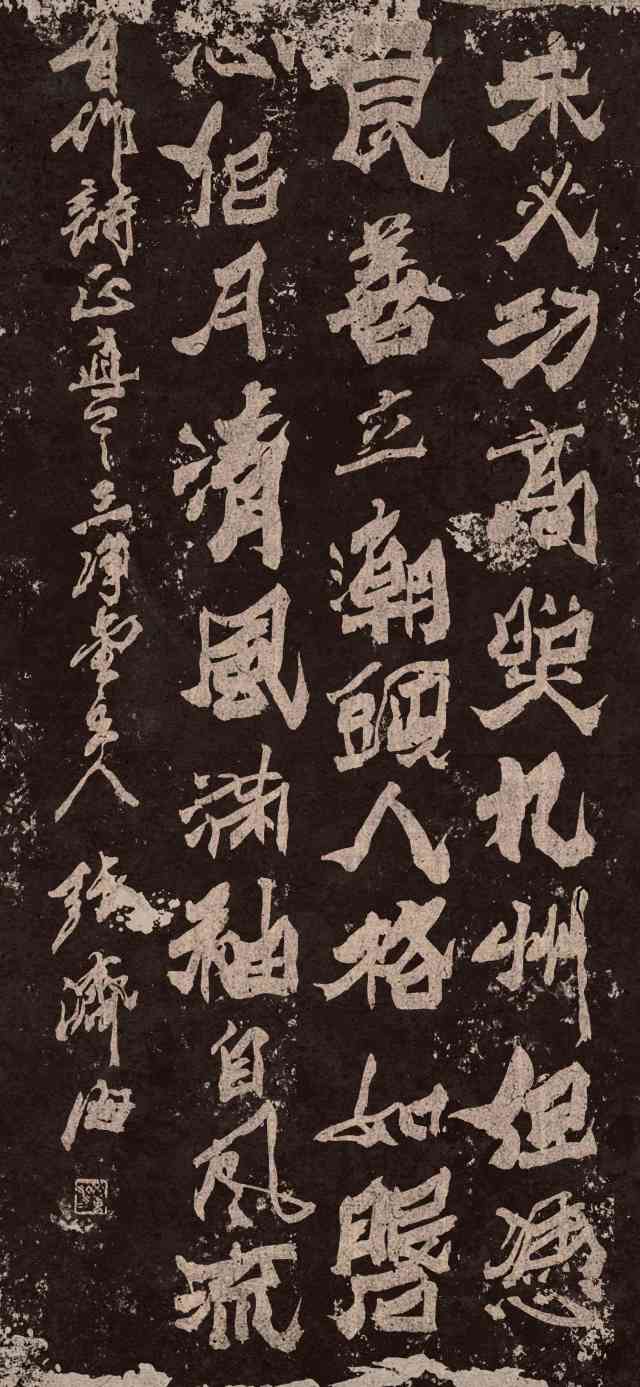 未必功高照九州但憑
良善立潮頭人格如磐
心侶月清風滿袖自風流
自作詩正直三淨堂主人 張濟海